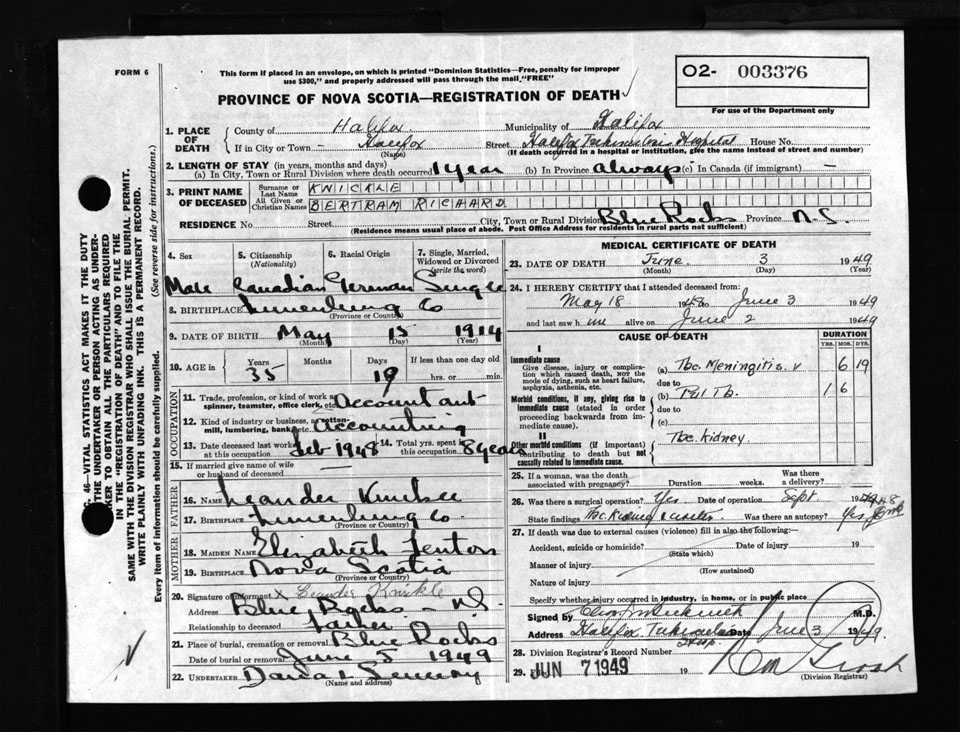 FORM 6
This form if placed in an envelope, on which is printed "Dominion Statistics—Free, penalty for improper
use $300," and properly addressed will pass through the mail "FREE"
PROVINCE OF NOVA SCOTIA—REGISTRATION OF DEATH
O2- 003376
For use of the Department only
1. PLACE OF DEATH
County of Halifax Municipality of Halifax
If in City or Town - Halifax (Name) Street Halifax Tuberculosis Hospital House No.
(If death occurred in a hospital or institution, give the name instead of street and number)
2. LENGTH OF STAY (in years, months and days)
(a) In City, Town or Rural Division where death occurred 1 year (b) In Province always (c) In Canada (if immigrant) —
3. PRINT NAME OF DECEASED
Surname or Last Name KNICKLE
All Given or Christian Names BERTRAM RICHARD
RESIDENCE No. Street City, Town or Rural Division Blue Rocks Province N.S.
(Residence means usual place of abode. Post Office Address for residents in rural parts not sufficient)
4. Sex 5. Citizenship (Nationality) 6. Racial Origin 7. Single, Married, Widowed or Divorced (write the word)
Male Canadian German Single
8. BIRTHPLACE Lunenburg Co
(Province or Country)
9. DATE OF BIRTH May 15 1914
(Month) (Day) (Year)
10. AGE in Years 35 Months Days 19 If less than one day old hrs. or min.
OCCUPATION
11. Trade, profession, or kind of work as spinner, teamster, office clerk, etc. Accountant
12. Kind of industry or business, as cotton-mill, lumbering, bank, etc. Accounting
13. Date deceased last worked at this occupation Feb 1948 14. Total yrs. spent in this occupation 8 years
15. If married give name of wife or husband of deceased
FATHER
16. Name Leander
17. Birthplace Lunenburg Co.
(Province or Country)
MOTHER
18. MAIDEN NAME Elizabeth Tenton
19. BIRTHPLACE Nova Scotia
(Province or Country)
20. Signature of informant x Leander Knickle
Address Blue Rocks - NS
Relationship to deceased Father
21. Place of burial, cremation or removal Blue Rocks
Date of burial or removal June 5 1949
22. UNDERTAKER
(Name and address)
MEDICAL CERTIFICATE OF DEATH
23. DATE OF DEATH June 3 1949
(Month) (Day) (Year)
24. I HEREBY CERTIFY that I attended deceased from:
May 18 1948 to June 3 1949
and last saw him alive on June 2 1949
CAUSE OF DEATH
DURATION
YRS. MOS. DYS.
I
Immediate cause
Give disease, injury or complication which caused death, NOT the mode of dying, such as heart failure, asphyxia, asthenia, etc.
(a) Tbc. Meningitis 6 19
due to
Morbid conditions, if any, giving rise to immediate cause (stated in order proceeding backwards from immediate cause).
(b) Pul Tb. 1 6
due to
(c)
II
Other morbid conditions (if important) contributing to death but not causally related to immediate cause.
Tbc. Kidney
25. If a woman, was the death associated with pregnancy? Duration weeks. Was there a delivery?
26. Was there a surgical operation? Yes Date of operation Sept 1948
State findings Tbc. Kidney Was there an autopsy? Yes
27. If death was due to external causes (violence) fill in also the following:
Accident, suicide or homicide? Date of injury 19
(State which)
Manner of injury
(How sustained)
Nature of injury
Specify whether injury occurred in industry, in home, or in public place
Signed by M.D.
Address Halifax Tuberculosis Hosp. Date June 3 1949.
28. Division Registrar's Record Number
29. JUN 7 1949 19
(Division Registrar)
C. 46—VITAL STATISTICS ACT MAKES IT THE DUTY
THE UNDERTAKER OR PERSON ACTING AS UNDER-
KER TO OBTAIN ALL THE PARTICULARS REQUIRED
IN THE "REGISTRATION OF DEATH" AND TO FILE THE
SAME WITH THE DIVISION REGISTRAR WHO SHALL ISSUE THE BURIAL PERMIT.
WRITE PLAINLY WITH UNFADING INK. THIS IS A PERMANENT RECORD.
Every item of information should be carefully supplied. (See reverse side for instructions.)